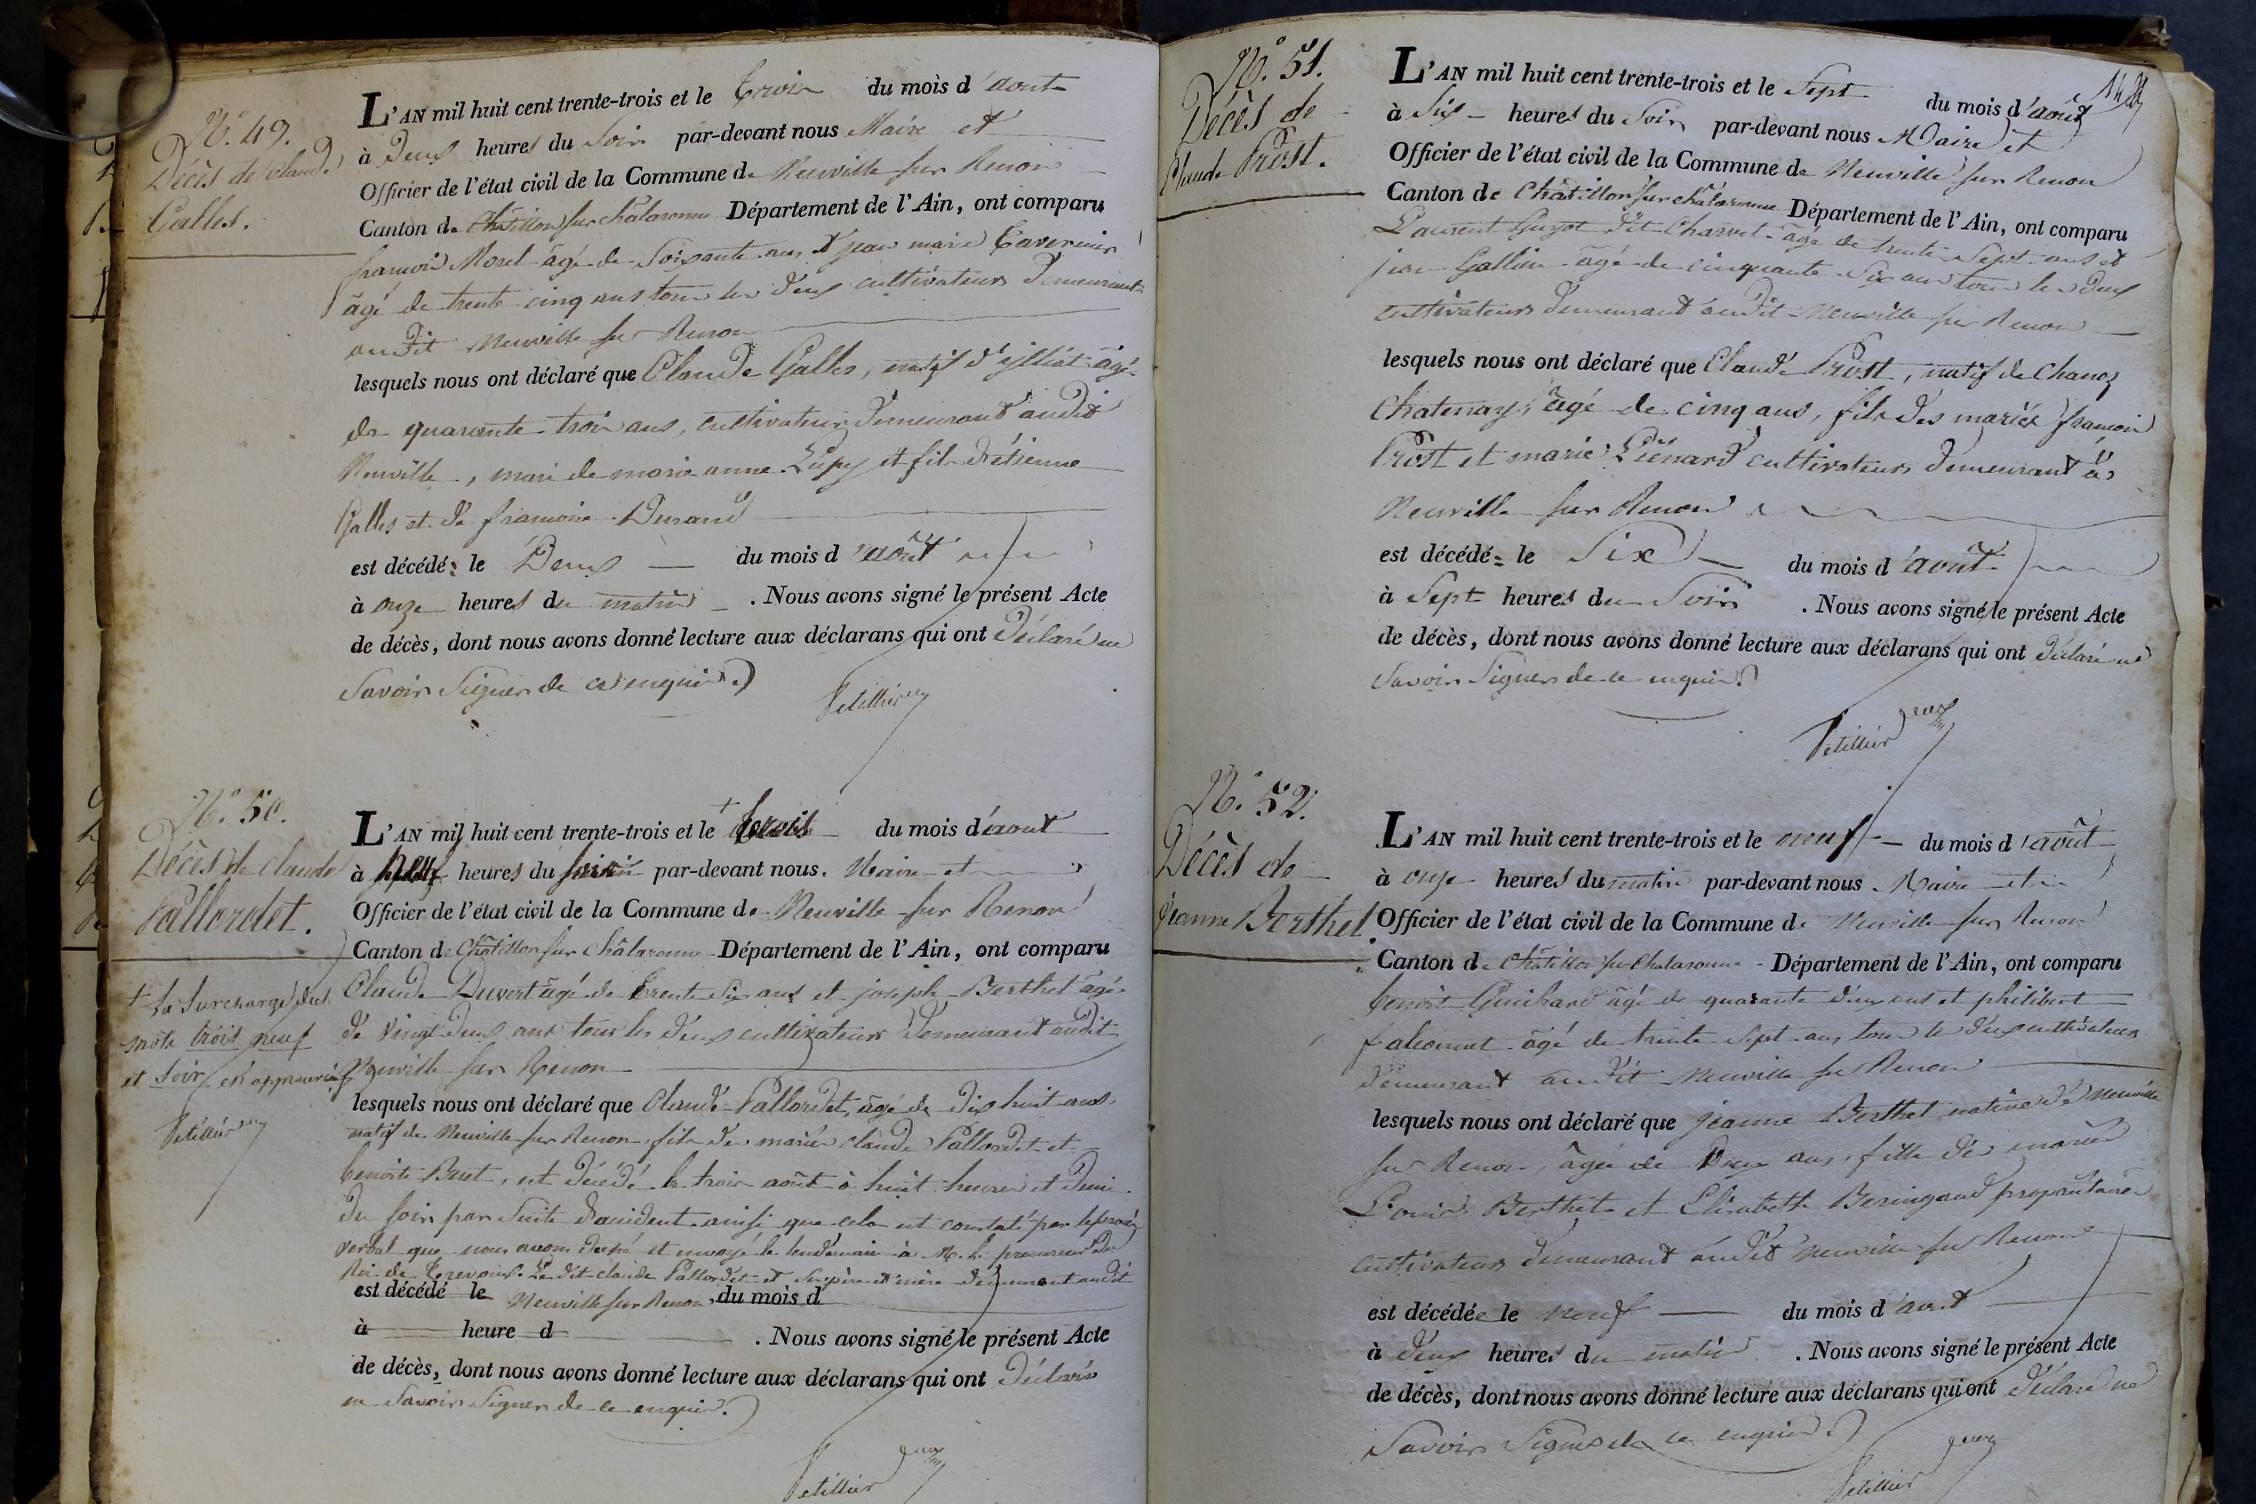 N.° 49.
Décès de Claude
Galles.
L'AN mil huit cent trente-trois et le trois du mois d'aout
à Deux heures du Soir par-devant nous Maire et
Officier de l'état civil de la Commune de Neuville sur Renon
Canton de Châtillon sur Chalaronne Département de l'Ain, ont comparu
françois Morel âgé de Soixante ans & jean marie Tavernier
âgé de trente cinq ans tous les deux cultivateurs Demeurant
audit Neuville sur Renon
lesquels nous ont déclaré que Claude Galles, natif d'illiat âgé
de quarante trois ans, cultivateur, demeurant audit
Neuville, mari de marie anne et fils d'étienne
Galles et de françoise Durand
est décédé le Deux du mois d'août
à onze heures du matin. Nous avons signé le présent Acte
de décès, dont nous avons donné lecture aux déclarans qui ont Déclaré ne
Savoir Signer de ce enquis.
Petillier
N.° 50.
Décès de claude
Pallordet.
+ la Surcharge des
mots trois neuf
et Soir est approuvée
Petillier
L'AN mil huit cent trente-trois et le + trois du mois d'aout
à neuf heures du soir par-devant nous. Maire et
Officier de l'état civil de la Commune de Neuville sur Renon
Canton de Châtillon sur Châlaronne Département de l'Ain, ont comparu
Claude Duvert âgé de trente Six ans et joseph Berthet âgé
de Vingt Deux ans tous les Deux cultivateurs Demeurant audit
Neuville sur Renon
lesquels nous ont déclaré que Claude Pallordet, âgé de Dix huit ans,
natif de Neuville sur Renon, fils des mariés claude Pallordet et
benoite Buet, est Décédé le trois août à huit heures et Demi
Du Soir par Suite d'accident ainsi que cela est constaté par le procès
verbal que nous avons Dressé et envoyé le lendemain à M. le procureur du
Roi de Trevoux. Le dit claude Pallordet et Ses père et mère demeurant audit
est décédé le Neuville sur Renon, du mois d
à heure d . Nous avons signé le présent Acte
de décès, dont nous avons donné lecture aux déclarans qui ont Déclaré
ne Savoir Signer de ce enquis.
Petillier
N.° 51.
Décès de
Claude Prost.
L'AN mil huit cent trente-trois et le Sept du mois d'août
à Six heures du Soir par-devant nous Maire et
Officier de l'état civil de la Commune de Neuville sur Renon
Canton de Châtillon sur Châlaronne Département de l'Ain, ont comparu
Laurent Guyot dit Charvet âgé de trente Sept ans et
jean Gallien âgé de cinquante Six ans tous les Deux
cultivateurs Demeurant audit Neuville sur Renon
lesquels nous ont déclaré que Claude Prost, natif de Chanoz
Chatenay, âgé de cinq ans, fils des mariés françois
Prost et marie Liénard cultivateurs Demeurant à
Neuville sur Renon
est décédé le Six du mois d'août
à Sept heures du Soir. Nous avons signé le présent Acte
de décès, dont nous avons donné lecture aux déclarans qui ont déclaré ne
Savoir Signer de ce enquis.
Petillier
N.° 52.
Décès de
jeanne Berthet.
L'AN mil huit cent trente-trois et le neuf du mois d'août
à onze heures du matin par-devant nous Maire et
Officier de l'état civil de la Commune de Neuville sur Renon
Canton de Châtillon sur Chalaronne Département de l'Ain, ont comparu
benoit Guichard âgé de quarante deux ans et philibert
âgé de trente Sept ans tous les Deux cultivateurs
Demeurant audit Neuville sur Renon
lesquels nous ont déclaré que jeanne Berthet native de Neuville
sur Renon, âgée de Deux ans, fille des mariés
Louis Berthet et Elisabeth propriétaires
cultivateurs demeurant audit Neuville sur Renon
est décédée le neuf du mois d'aout
à deux heures du matin. Nous avons signé le présent Acte
de décès, dont nous avons donné lecture aux déclarans qui ont déclaré ne
Savoir Signer de ce enquis.
Petillier